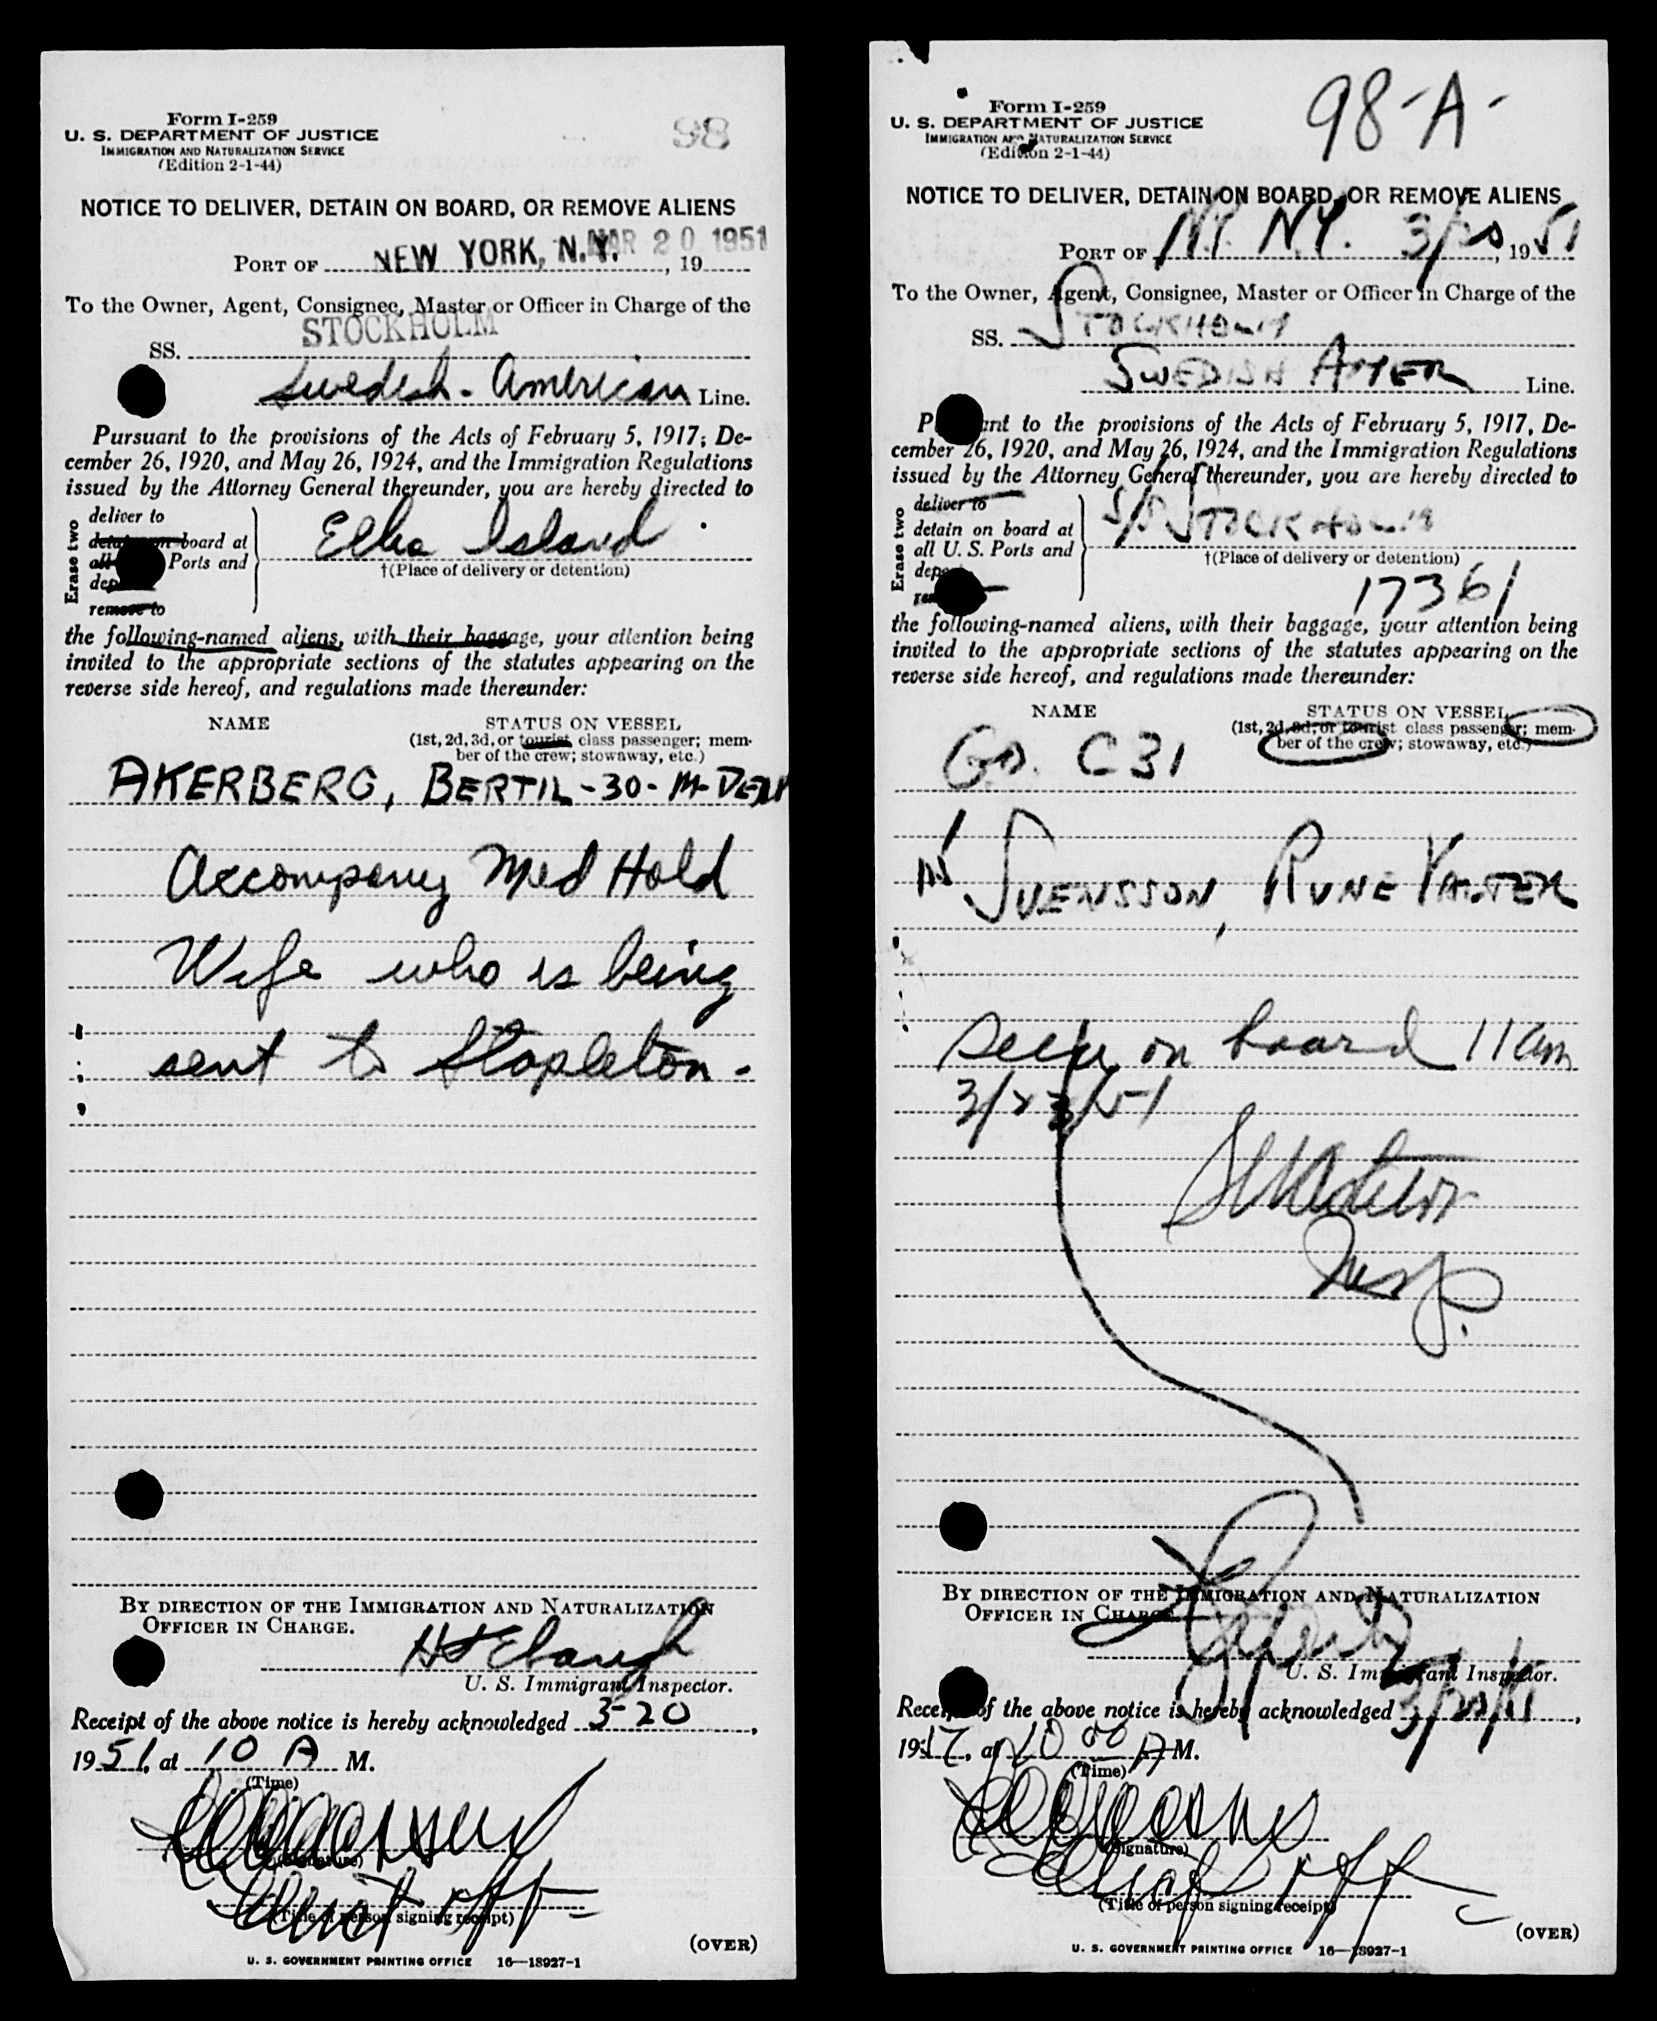 Form I-259
U. S. DEPARTMENT OF JUSTICE
IMMIGRATION AND NATURALIZATION SERVICE
(Edition 2-1-44)
98
NOTICE TO DELIVER, DETAIN ON BOARD, OR REMOVE ALIENS
PORT OF NEW YORK, N.Y. MAR 20 1951, 19
To the Owner, Agent, Consignee, Master or Officer in Charge of the
SS. STOCKHOLM
Swedish-American Line.
Pursuant to the provisions of the Acts of February 5, 1917; De-
cember 26, 1920, and May 26, 1924, and the Immigration Regulations
issued by the Attorney General thereunder, you are hereby directed to
Erase two
deliver to
board at
Ports and
remove to
Ellis Island
†(Place of delivery or detention)
the following-named aliens, with their baggage, your attention being
invited to the appropriate sections of the statutes appearing on the
reverse side hereof, and regulations made thereunder:
NAME STATUS ON VESSEL
(1st, 2d, 3d, or tourist class passenger; mem-
ber of the crew; stowaway, etc.)
AKERBERG, BERTIL-30-M-
Accompany Med Hold
Wife who is being
sent to Stapleton.
BY DIRECTION OF THE IMMIGRATION AND NATURALIZATION
OFFICER IN CHARGE.
U. S. Immigrant Inspector.
Receipt of the above notice is hereby acknowledged 3-20,
1951, at 10 A M.
(Time)
(Signature)
Chief off
(Title of person signing receipt)
(OVER)
U. S. GOVERNMENT PRINTING OFFICE 16—18927-1
Form I-259
U. S. DEPARTMENT OF JUSTICE
IMMIGRATION AND NATURALIZATION SERVICE
(Edition 2-1-44)
98-A-
NOTICE TO DELIVER, DETAIN ON BOARD, OR REMOVE ALIENS
PORT OF N.Y. N.Y. 3/20, 1951
To the Owner, Agent, Consignee, Master or Officer in Charge of the
SS. STOCKHOLM
SWEDISH AMER Line.
to the provisions of the Acts of February 5, 1917, De-
cember 26, 1920, and May 26, 1924, and the Immigration Regulations
issued by the Attorney General thereunder, you are hereby directed to
Erase two
deliver to
detain on board at
all U. S. Ports and
S/S STOCKHOLM
†(Place of delivery or detention)
17361
the following-named aliens, with their baggage, your attention being
invited to the appropriate sections of the statutes appearing on the
reverse side hereof, and regulations made thereunder:
NAME STATUS ON VESSEL
(1st, 2d, 3d, or tourist class passenger; mem-
ber of the crew; stowaway, etc.)
C 31
SVENSSON, RUNE VALTER
Seen on board 11 am
3/23/51
Insp.
BY DIRECTION OF THE IMMIGRATION AND NATURALIZATION
OFFICER IN CHARGE.
U. S. Immigrant Inspector.
Receipt of the above notice is hereby acknowledged 3/20/51,
19, at 10 00 A M.
(Time)
(Signature)
Chief off
(Title of person signing receipt)
(OVER)
U. S. GOVERNMENT PRINTING OFFICE 16—18927-1